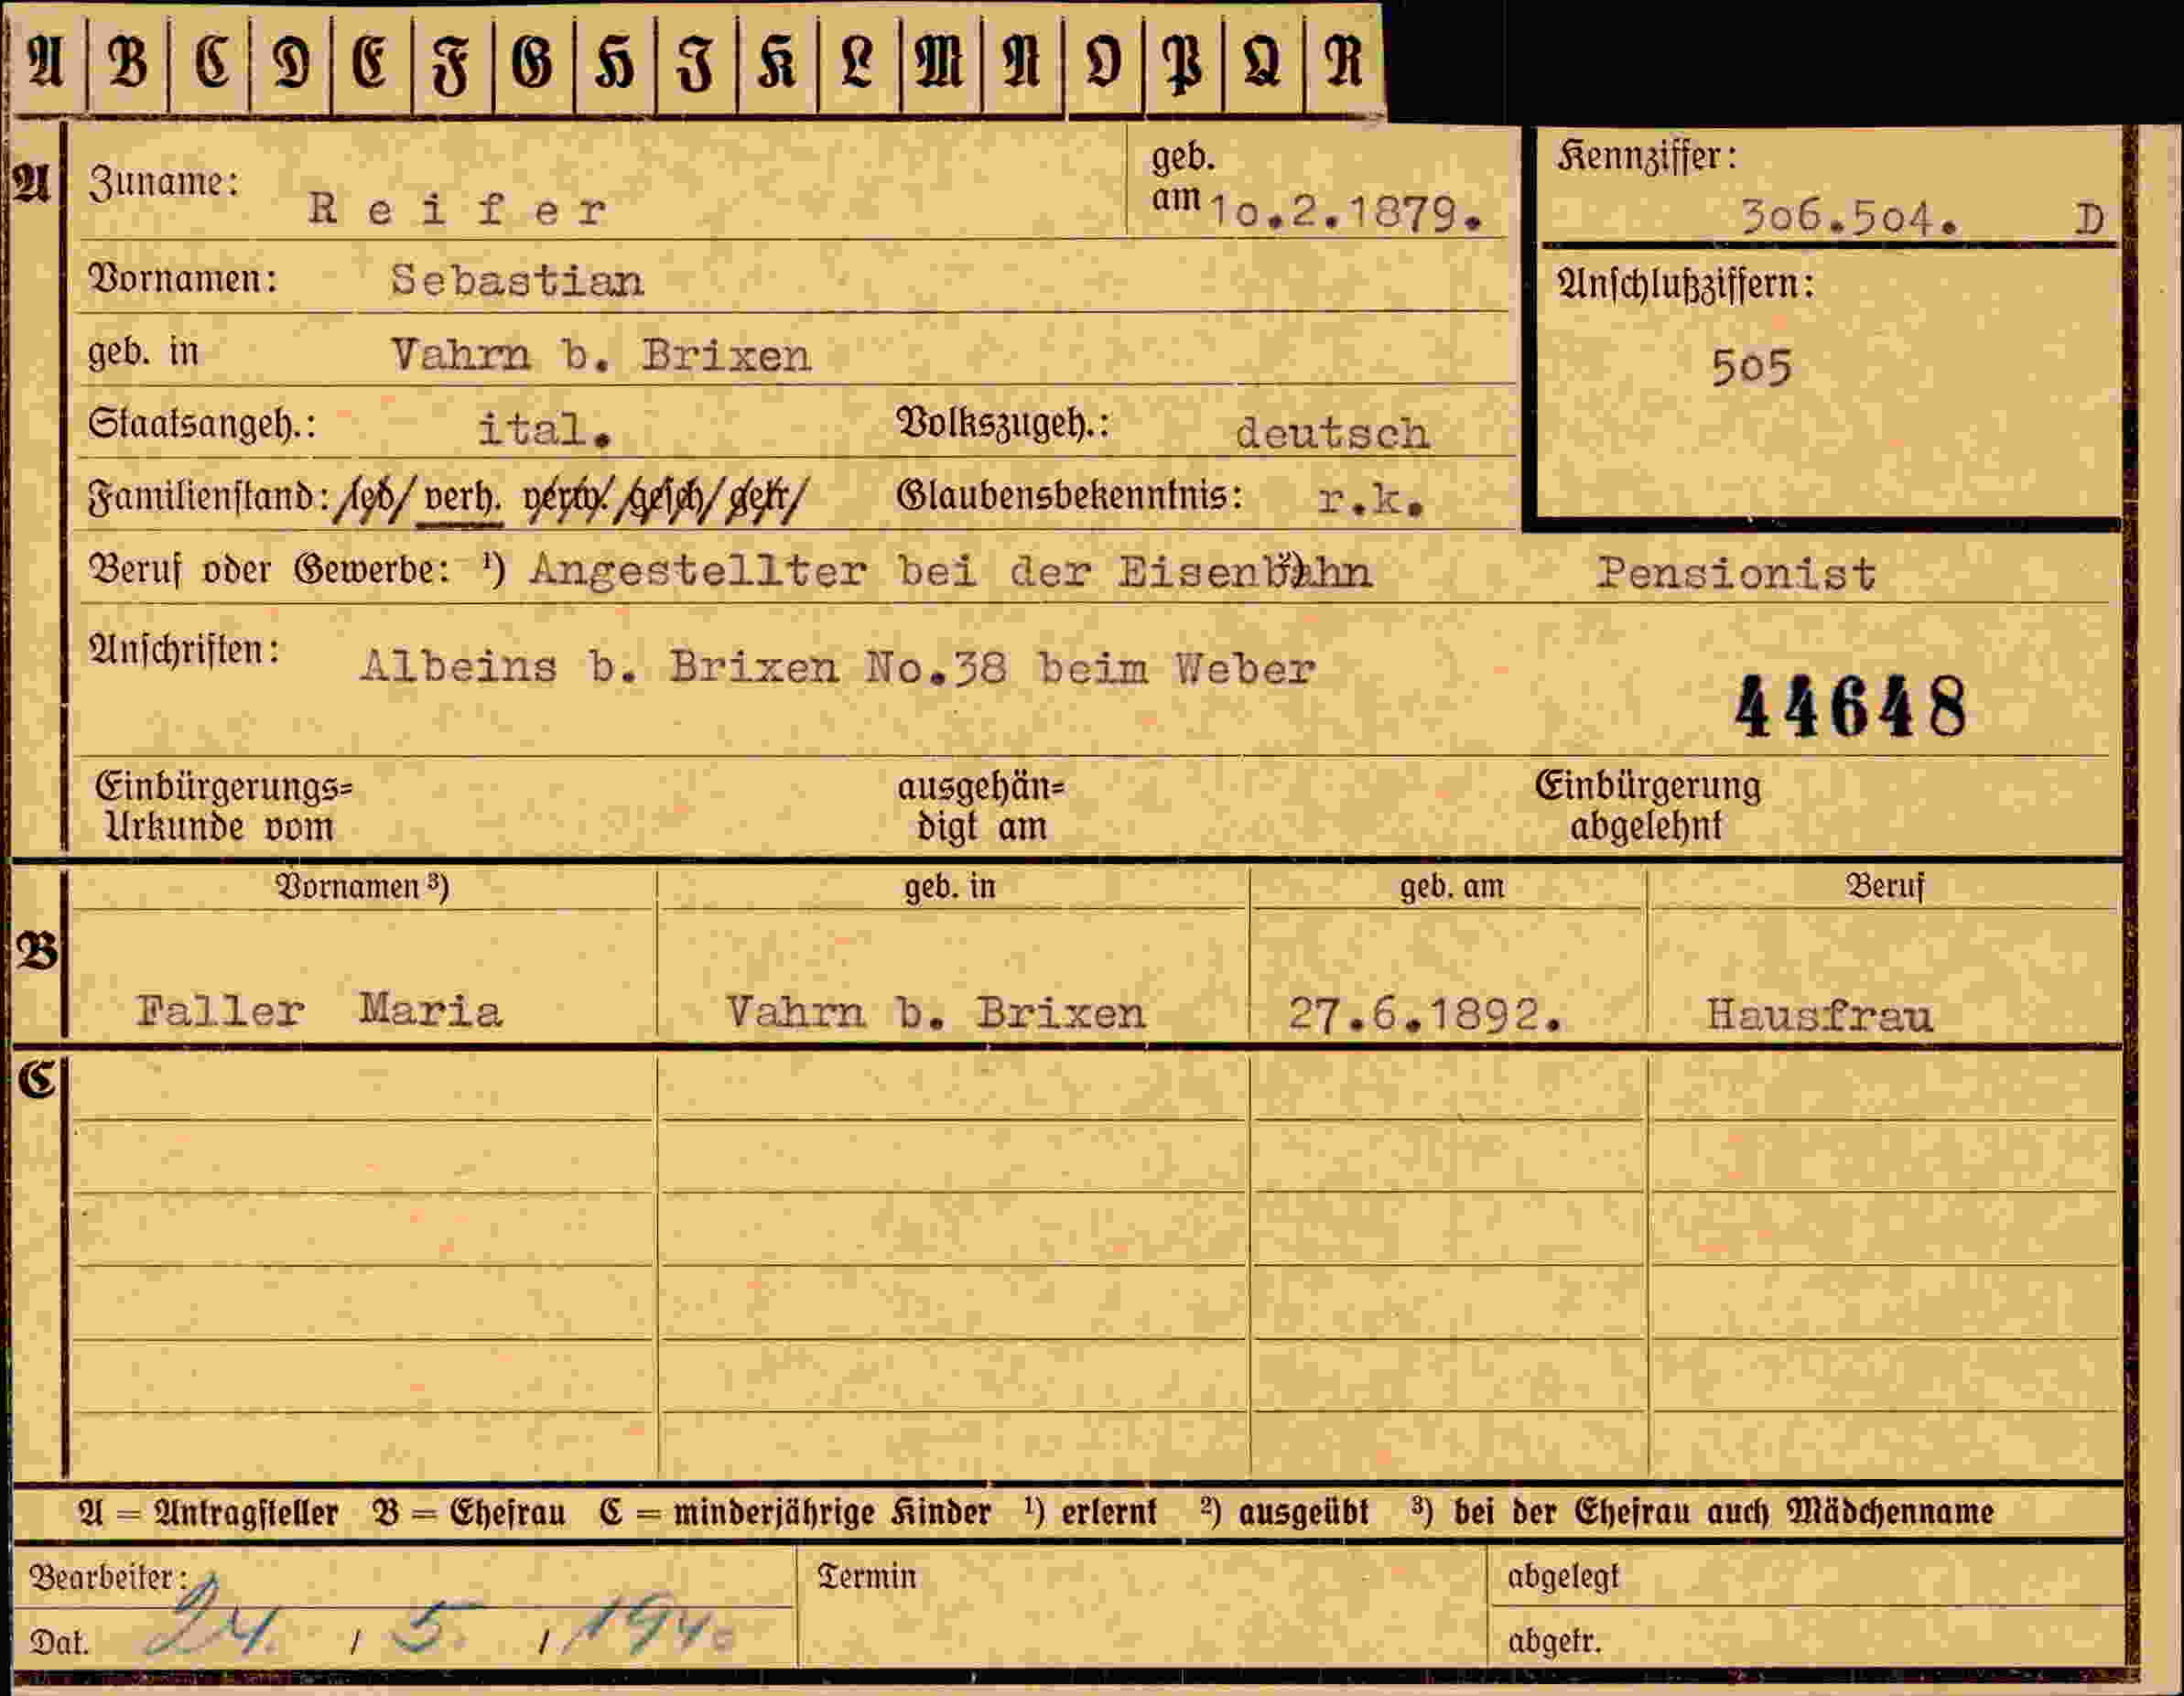 A B C D E F G H I K L M N O P Q R
A Zuname: Reifer geb. am 10.2.1879. Kennziffer: 306.504. D
Vornamen: Sebastian Anschlußziffern:
geb. in Vahrn b. Brixen 505
Staatsangeh.: ital. Volkszugeh.: deutsch
Familienstand: led. verh. verw. gesch. getr. Glaubensbekenntnis: r.k.
Beruf oder Gewerbe: ¹) Angestellter bei der Eisenbahn Pensionist
Anschriften: Albeins b. Brixen No.38 beim Weber
44648
Einbürgerungs= ausgehän= Einbürgerung
Urkunde vom digt am abgelehnt
Vornamen ³) geb. in geb. am Beruf
B
Faller Maria Vahrn b. Brixen 27.6.1892. Hausfrau
C
A = Antragsteller B = Ehefrau C = minderjährige Kinder ¹) erlernt ²) ausgeübt ³) bei der Ehefrau auch Mädchenname
Bearbeiter: Termin abgelegt
Dat. 24. / 5. / 1940 abgetr.